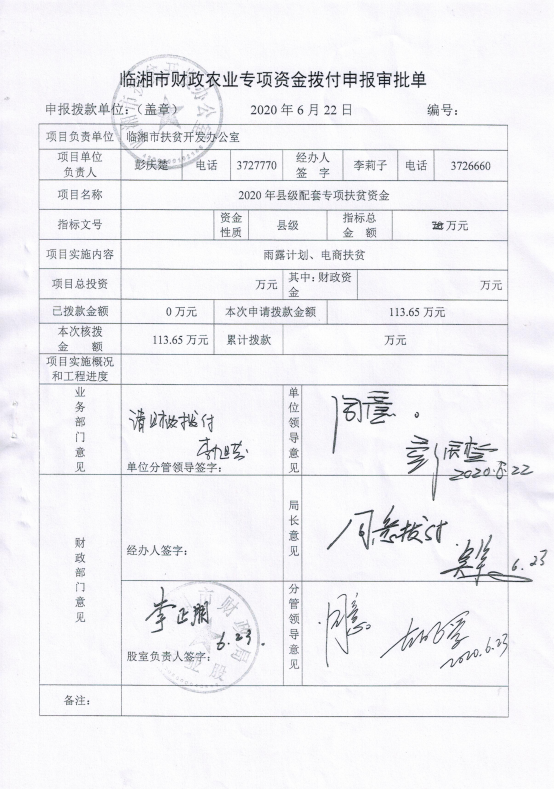 临湘市财政农业专项资金拨付申报审批单
申报拨款单位：（盖章） 2020 年 6 月 22 日 编号：
项目负责单位 临湘市扶贫开发办公室
项目单位负责人 彭庆楚 电话 3727770 经办人签字 李莉子 电话 3726660
项目名称 2020 年县级配套专项扶贫资金
指标文号 资金性质 县级 指标总金额 万元
项目实施内容 雨露计划、电商扶贫
项目总投资 万元 其中：财政资金 万元
已拨款金额 0 万元 本次申请拨款金额 113.65 万元
本次核拨金额 113.65 万元 累计拨款 万元
项目实施概况和工程进度
业务部门意见 请财政拨付
单位分管领导签字：
单位领导意见 同意。
2020.6.22
财政部门意见
经办人签字：
局长意见 同意拨付
6.23
李正明
6.23.
股室负责人签字：
分管领导意见 同意
2020.6.23
备注：